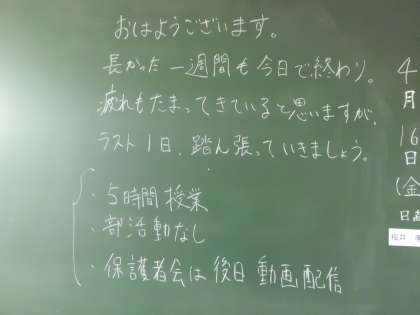 おはようございます。
長かった一週間も今日で終わり。
疲れもたまってきていると思いますが、
ラスト1日、踏ん張っていきましょう。
・5時間授業
・部活動なし
・保護者会は後日動画配信
4
月
16
日
(金
日直
桜井